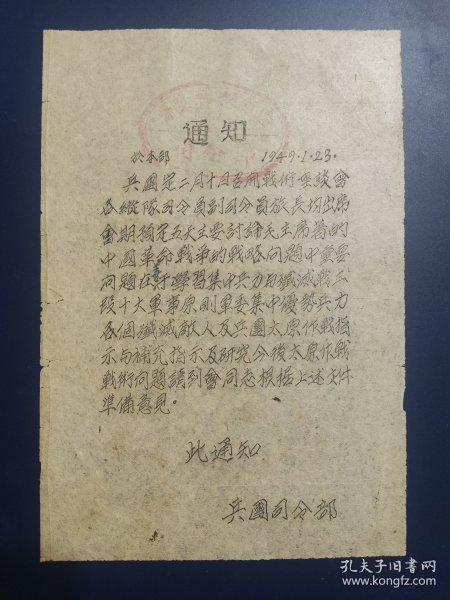 通知
於本部 1949.1.23.
兵團定二月十日召開戰術座談會
各縱隊司令員副司令員旅長均出席
會期預定五天主要討論毛主席著的
中國革命戰爭的戰略問題中重要
問題在於學習集中兵力与殲滅戰二
段十大軍事原則軍委集中優勢兵力
各個殲滅敵人及兵團太原作戰指
示与補充指示及研究今後太原作戰
戰術問題請到會同志根據上述文件
準備意見。
此通知
兵團司令部
孔夫子旧书网
www.kongfz.com